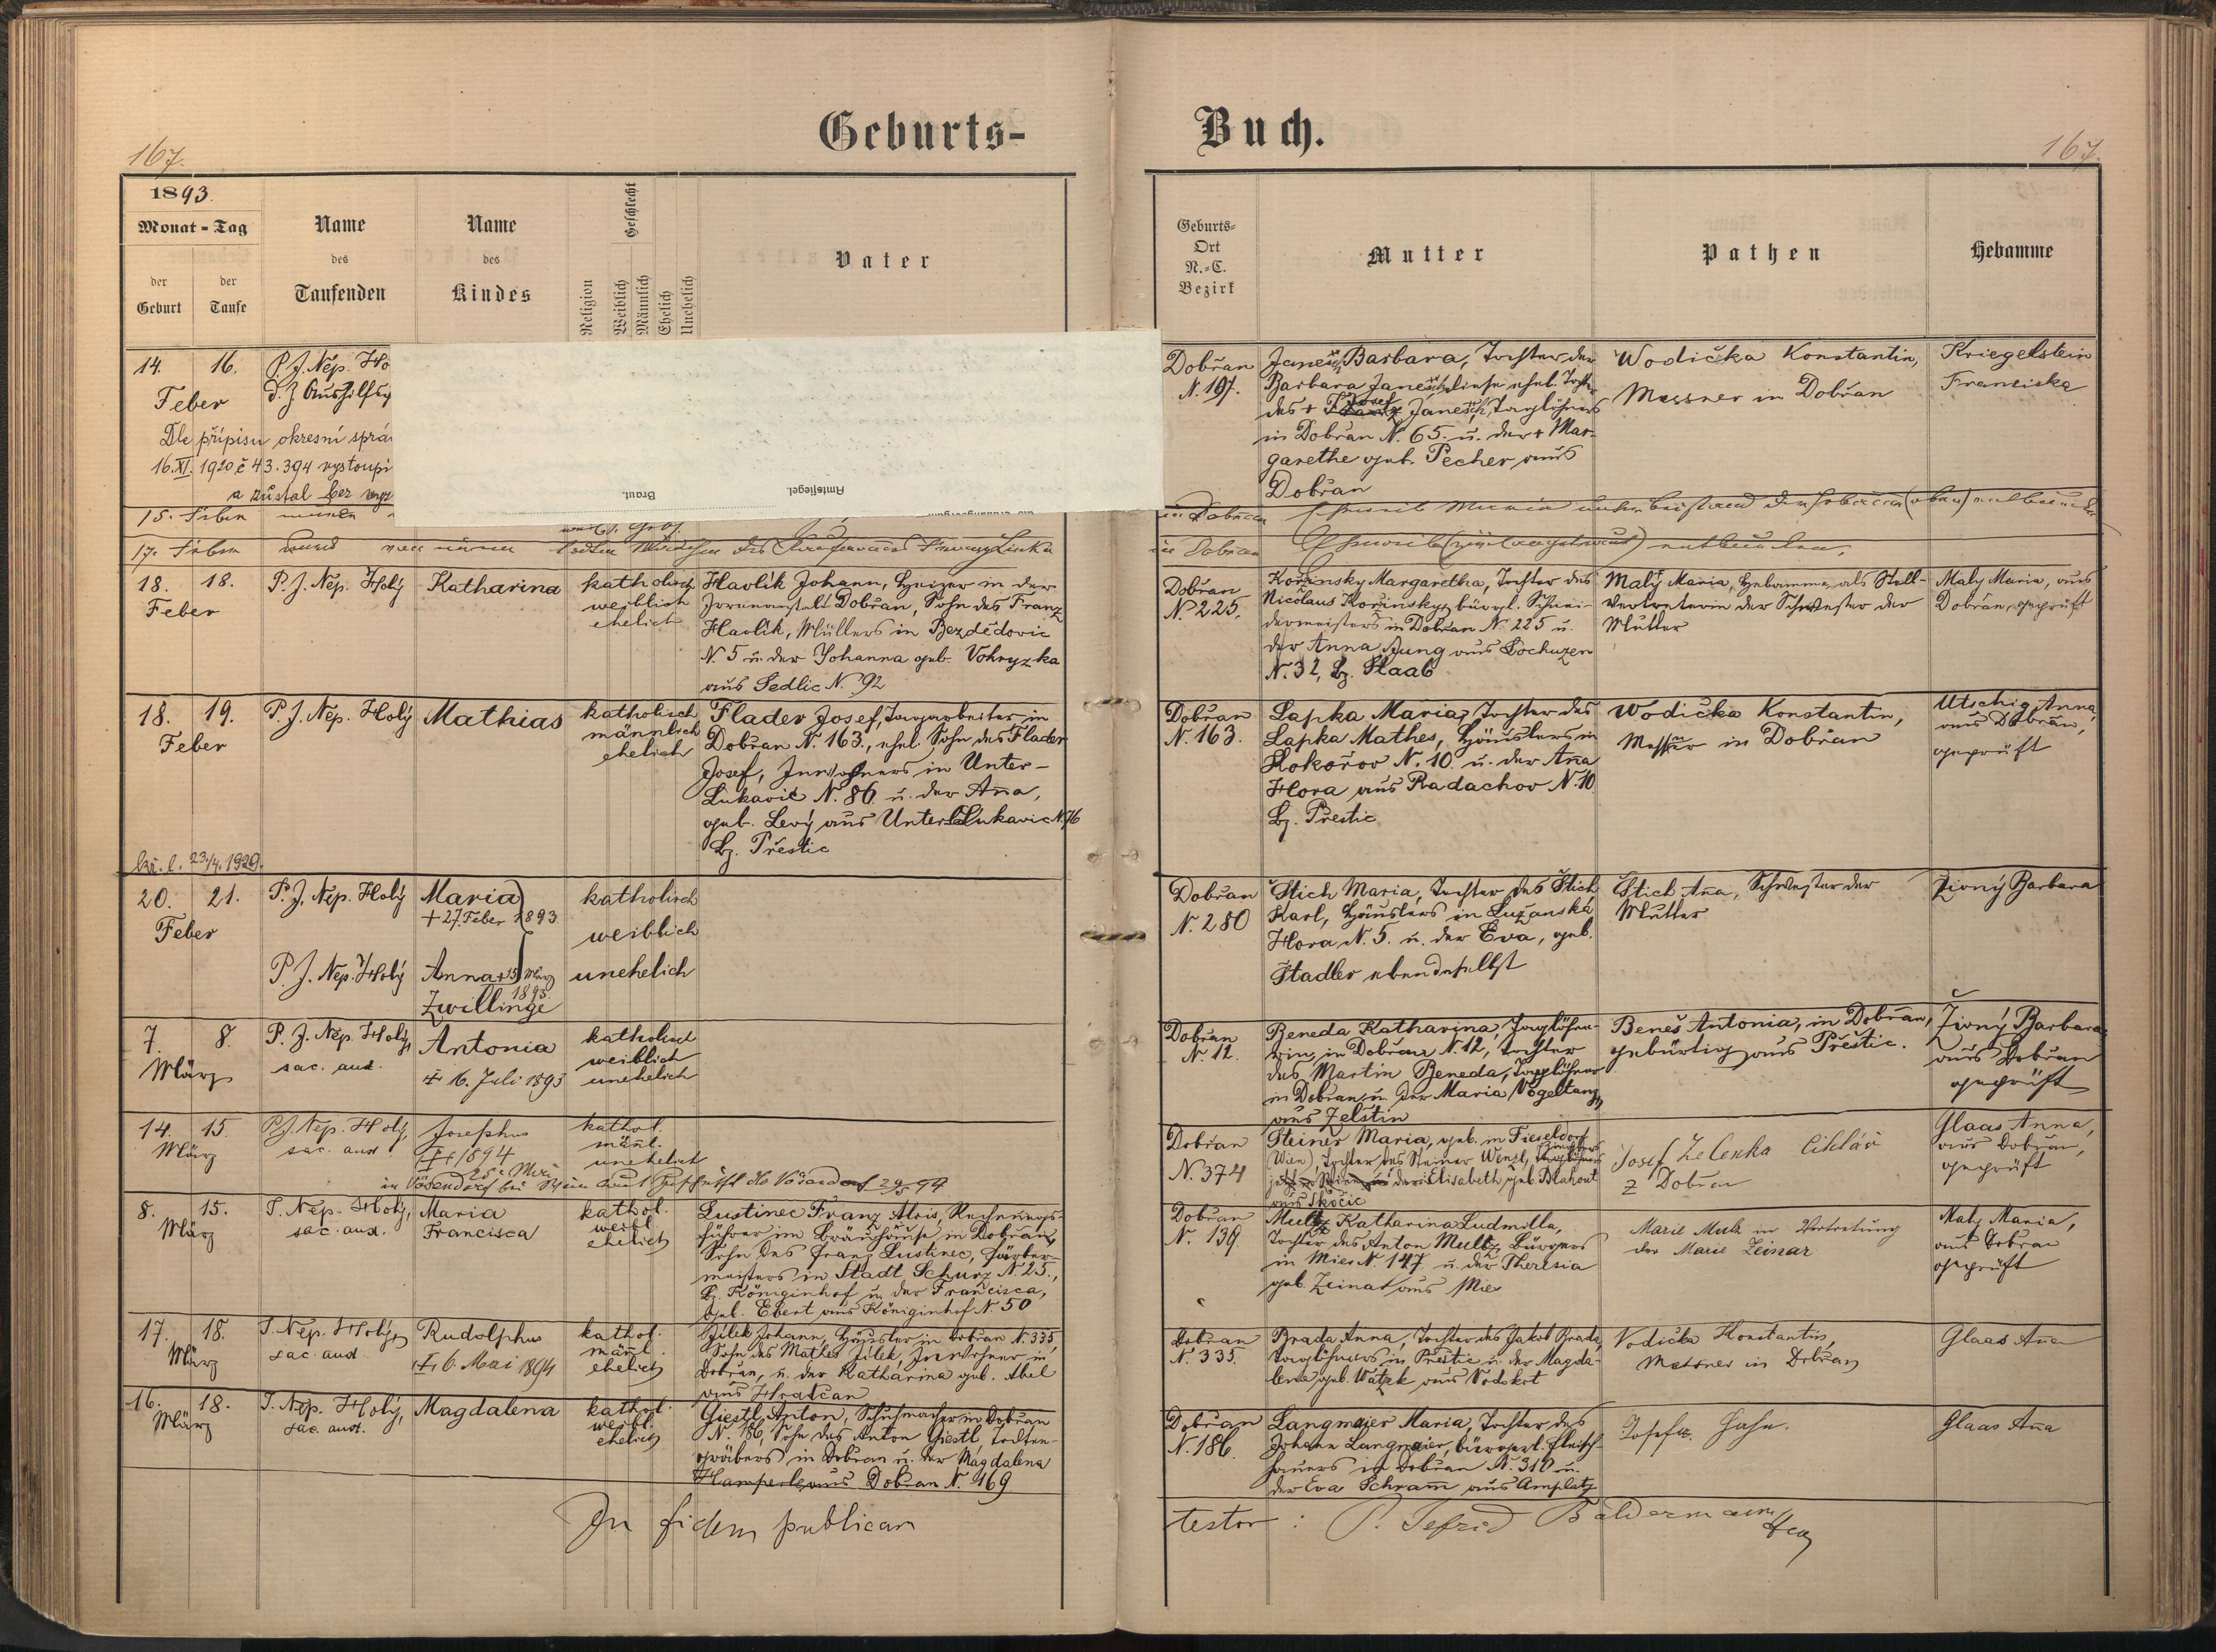 Geburts-
Buch.
167.
167.
1893.
Monat - Tag
der Geburt
der Taufe
Name des Taufenden
Name des Kindes
Religion
Geschlecht
Weiblich
Männlich
Ehelich
Unehelich
Vater
Geburts-
Ort
N.-C.
Bezirk
Mutter
Pathen
Hebamme
14. 16. P. J. Nep. Ho
Feber
Dle přípisu okresní sprá
16.XI. 1920 č 43.394 vystoupi
a zůstal bez
Braut.
Amtssiegel.
Dobřan
N. 191.
Janesch Barbara, Tochter der
Barbara Janesch, diese ehel. Tochter
des + Josef Janesch, Taglöhners
in Dobřan N. 65. u. der + Mar-
garethe geb. Pecher aus
Dobřan
Wodička Konstantin,
Messner in Dobřan
Kriegelstein
Franciska
15. Feber
in Dobřan
17. Feber
in Dobřan
18. 18. P. J. Nep. Holý
Feber
Katharina
katholisch
weiblich
ehelich
Havlík Johann, Heizer in der
Irrenanstalt Dobřan, Sohn des Franz
Havlík, Müllers in Bezdědovic
N. 5 u. der Johanna geb. Vohryzka
aus Sedlic N. 92
Dobřan
N. 225.
Kořinsky Margaretha, Tochter des
Nicolaus Kořinsky, bürgl. Schnei-
dermeisters in Dobřan N. 225 u.
der Anna Jung aus Lochuzen
N. 32, Bz. Staab
Malý Maria, Hebamme, als Stell-
vertreterin der Schwester der
Mutter
Maly Maria, aus
Dobřan, geprüft
18. 19. P. J. Nep. Holý
Feber
Mathias
katholisch
männlich
ehelich
Flader Josef, Tagarbeiter in
Dobřan N. 163., ehel. Sohn des Flader
Josef, Inwohners in Unter-
Lukavic N. 86 u. der Aña,
geb. Levý aus Unter Lukavic N. 76
Bz. Přestic
23./4. 1929.
Dobřan
N. 163.
Lapka Maria, Tochter des
Lapka Mathes, Häuslers in
Kokořov N. 10. u. der Aña
Hora aus Radachov N. 10
Bz. Přestic
Wodička Konstantin,
Messner in Dobřan
Utschig Anna,
aus Dobřan,
geprüft
20. 21. P. J. Nep. Holý
Feber
Maria
+ 27. Feber 1893
P. J. Nep. Holý
Anna + 15 März
1893.
Zwillinge
katholisch
weiblich
unehelich
Dobřan
N. 280
Stich Maria, Tochter des Stich
Karl, Häuslers in Lužanská
Hora N. 5. u. der Eva, geb.
Stadler ebendaselbst
Stich Aña, Schwester der
Mutter
Živný Barbara
7. 8. P. J. Nep. Holý,
März sac. aud.
Antonia
+ 16. Juli 1893
katholisch
weiblich
unehelich
Dobřan
N. 12.
Beneda Katharina, Taglöhne-
rin in Dobřan N. 12, Tochter
des Martin Beneda, Taglöhner
in Dobřan u. der Maria Vogeltanz
aus Zelštin
Beneš Antonia, in Dobřan,
gebürtig aus Přestic.
Živný Barbara
aus Dobřan
geprüft
14. 15. P. J. Nep. Holý
März sac. aud
Josephus
1894
kathol.
mäñl.
unehelich
Dobřan
N. 374
Steiner Maria, geb. in
(Wien), Tochter des Steiner Wenzl,
Elisabeth, geb. Blahout
aus Skočic
Josef Zelenka cihlář
z Dobřan
Glaas Anna,
aus Dobřan,
geprüft
8. 15. J. Nep. Holý,
März sac. aud.
Maria
Francisca
kathol.
weibl
ehelich
Lustinec Franz Alois, Rechnungs-
führer im Bräuhause in Dobřan,
Sohn des Franz Lustinec, Färber-
meisters in Stadt Schurz N. 25.,
Bz. Königinhof u. der Francisca,
geb. Ebert aus Königinhof N. 50
Dobřan
N. 139.
Multz Katharina Ludmilla,
Tochter des Anton Multz, Bürgers
in Mies N. 147 u. der Theresia
geb. Zeinar aus Mies
Marie Multz in Vertretung
der Marie Zeinar
Maly Maria,
aus Dobřan
geprüft
17. 18. J. Nep. Holý,
März sac. aud
Rudolphus
+ 6. Mai 1894
kathol.
mäñl.
ehelich
Jílek Johann, Häusler in Dobřan N. 335,
Sohn des Mathes Jílek, Inwohner in
Dobřan, u. der Katharina geb. Abel
aus Hradčan
Dobřan
N. 335.
Brada Anna, Tochter des Jakob Brada,
Taglöhners in Přestic u. der Magda-
lena geb. Watzk aus Vodokrt
Vodička Konstantin,
Messner in Dobřan
Glaas Aña
16. 18. J. Nep. Holý,
März sac. aud.
Magdalena
kathol.
weibl.
ehelich
Giestl Anton, Schuhmacher in Dobřan
N. 186, Sohn des Anton Giestl, Todten-
gräbers in Dobřan u. der Magdalena
Hamperle aus Dobřan N. 169
Dobřan
N. 186.
Langmaier Maria, Tochter des
Johann Langmaier, bürgerl. Fleisch-
hauers in Dobřan N. 310 u.
der Eva Schram̃ aus Amplatz
Josefa Hahn.
Glaas Aña
In fidem publicam
testor: P. Sefrid Baldermann